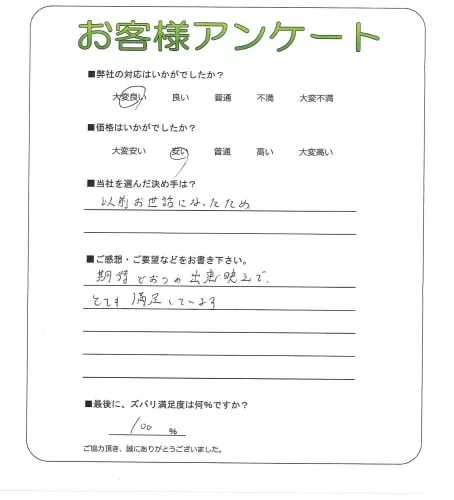 お客様アンケート
■弊社の対応はいかがでしたか？
大変良い 良い 普通 不満 大変不満
■価格はいかがでしたか？
大変安い 安い 普通 高い 大変高い
■当社を選んだ決め手は？
以前お世話になったため
■ご感想・ご要望などをお書き下さい。
期待どおりの出来映えで、
とても満足しています
■最後に、ズバリ満足度は何%ですか？
100 %
ご協力頂き、誠にありがとうございました。